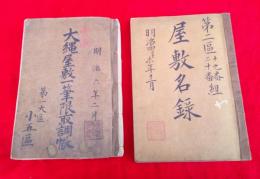 明治八年二月
大縄屋敷一筆限取調帳
第一大区
小五区
第二區
十九番
二十番
組
屋敷名録
明治
年
月